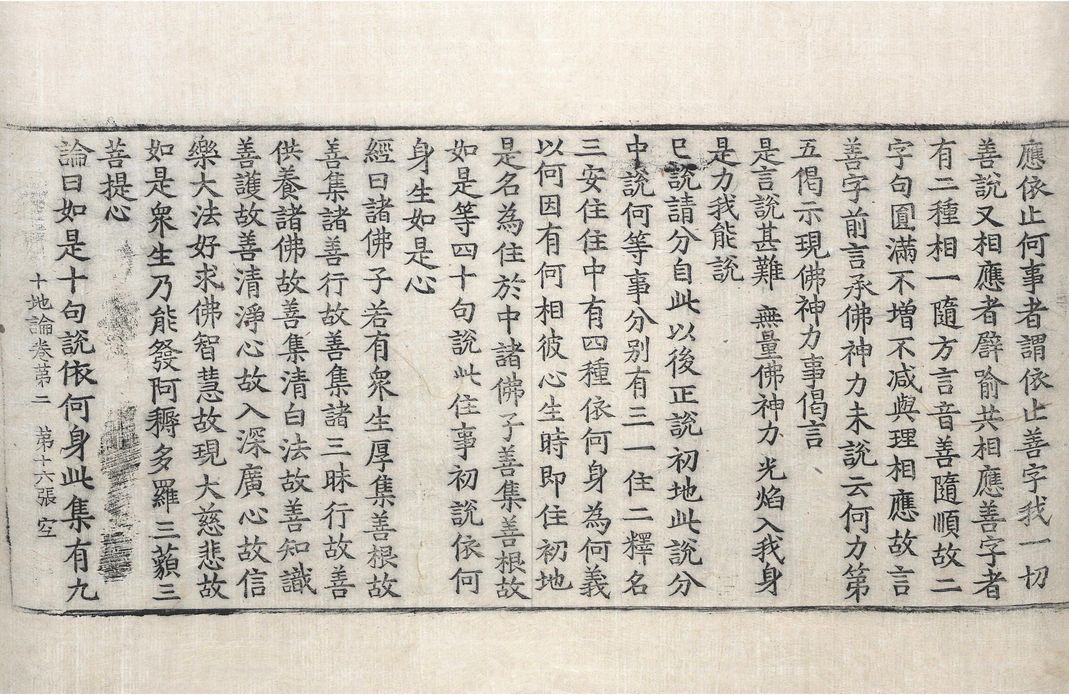 應依止何事者謂依止善字我一切
善說又相應者譬喻共相應善字者
有二種相一隨方言音善隨順故二
字句圎滿不增不减與理相應故言
善字前言承佛神力未說云何力第
五偈示現佛神力事偈言
是言說甚難 無量佛神力 光焰入我身
是力我能說
已說請分自此以後正說初地此說分
中說何等事分别有三一住二釋名
三安住住中有四種依何身為何義
以何因有何相彼心生時即住初地
是名為住於中諸佛子善集善根故
如是等四十句說此住事初說依何
身生如是心
經曰諸佛子若有衆生厚集善根故
善集諸善行故善集諸三昧行故善
供養諸佛故善集清白法故善知識
善護故善清淨心故入深廣心故信
樂大法好求佛智慧故現大慈悲故
如是衆生乃能發阿耨多羅三藐三
菩提心
十地論卷第二 第十六張 空
論曰如是十句說依何身此集有九